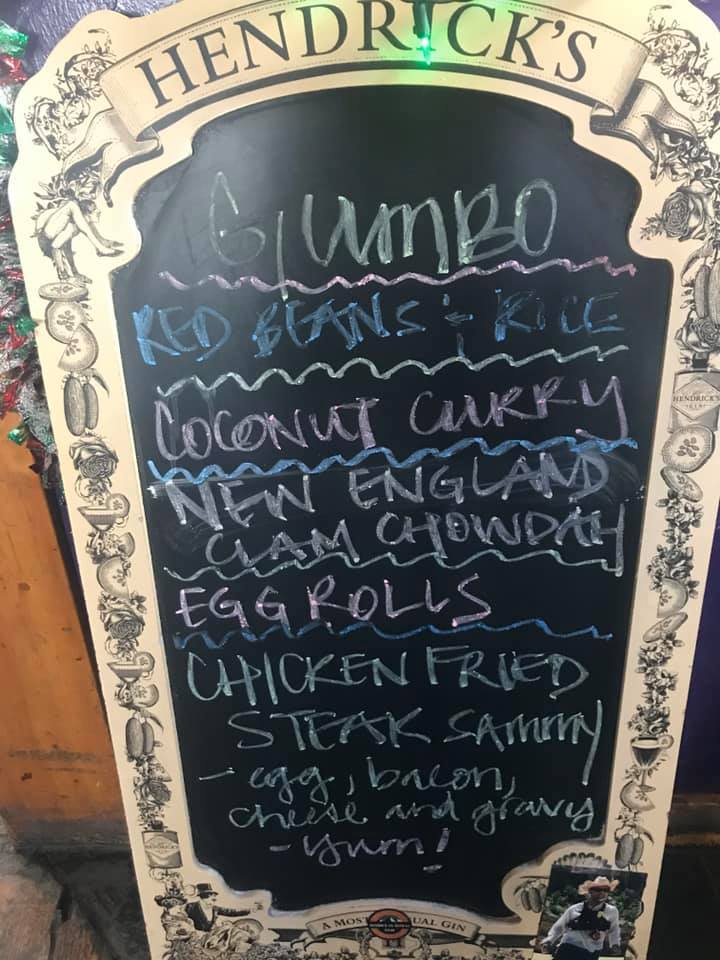 HENDRICK'S
GUMBO
RED BEANS & RICE
COCONUT CURRY
NEW ENGLAND
CLAM CHOWDAH
EGG ROLLS
CHICKEN FRIED
STEAK SAMMY
- egg, bacon,
cheese and gravy
- yum!
HENDRICK'S
A MOST UAL GIN